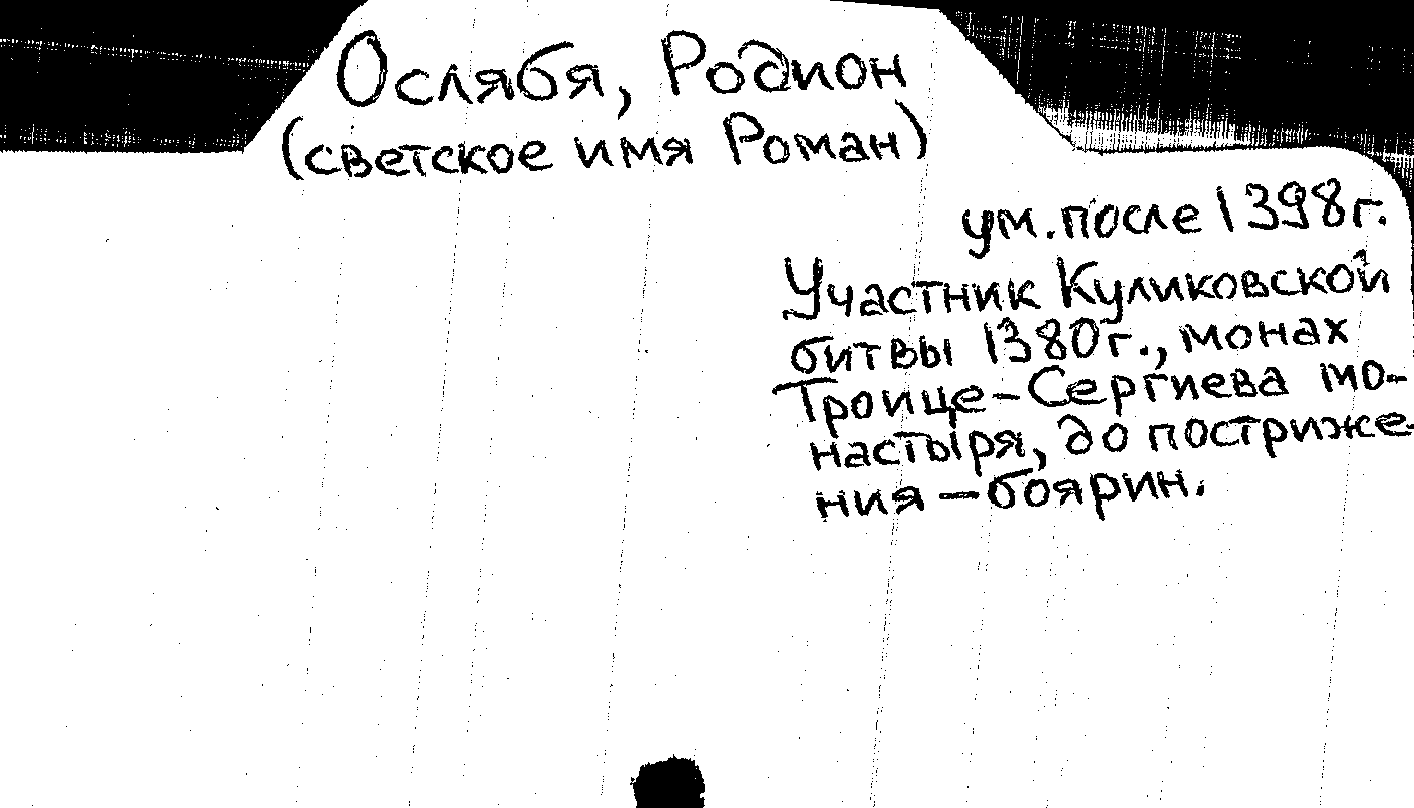 Ослябя, Родион
(светское имя Роман)
ум. после 1398 г.
Участник Куликовской
битвы 1380 г., монах
Троице-Сергиева мо-
настыря, до постриже-
ния – боярин.